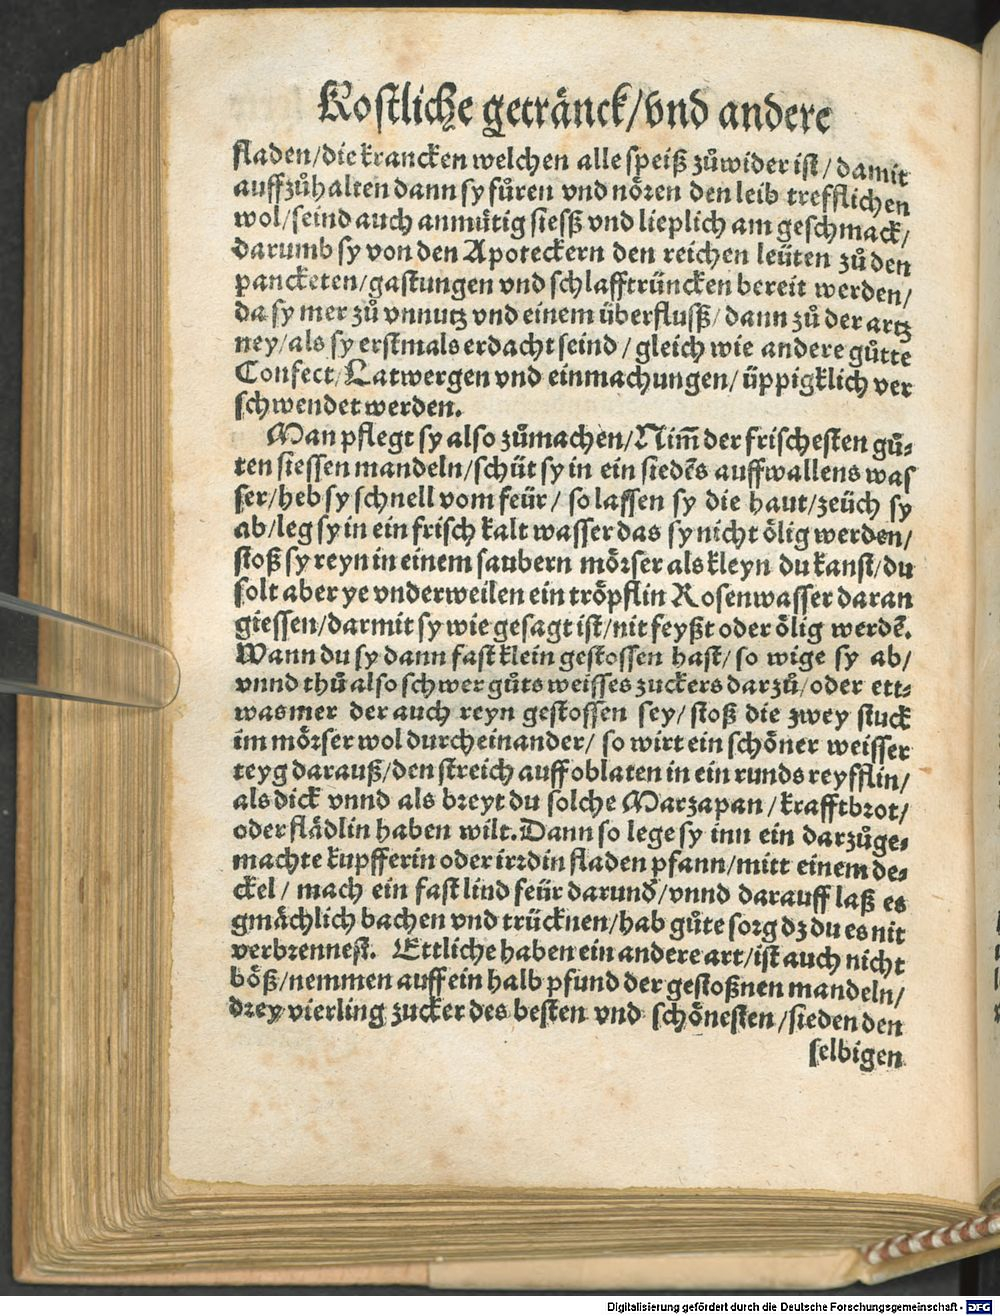 Kostliche getränck/vnd andere
fladen/die krancken welchen alle speiß zůwider ist/damit
auffzůhalten dann sy fůren vnd nören den leib trefflichen
wol/seind auch anmůtig siesß vnd lieplich am geschmack/
darumb sy von den Apoteckern den reichen leüten zů den
pancketen/gastungen vnd schlafftrüncken bereit werden/
da sy mer zů vnnutz vnd einem überflusß/dann zů der artz
ney/als sy erstmals erdacht seind/gleich wie andere gůtte
Confect/Latwergen vnd einmachungen/üppigklich ver
schwendet werden.
Man pflegt sy also zůmachen/Nim̃ der frischesten gů⸗
ten siessen mandeln/schüt sy in ein siedēs auffwallens was
ser/heb sy schnell vom feür/so lassen sy die haut/zeüch sy
ab/leg sy in ein frisch kalt wasser das sy nicht ölig werden/
stoß sy reyn in einem saubern mörser als kleyn du kanst/du
solt aber ye vnderweilen ein tröpflin Rosenwasser daran
giessen/darmit sy wie gesagt ist/nit feyßt oder ölig werdē.
Wann du sy dann fast klein gestossen hast/so wige sy ab/
vnnd thů also schwer gůts weisses zuckers darzů/oder ett⸗
was mer der auch reyn gestossen sey/stoß die zwey stuck
im mörser wol durcheinander/so wirt ein schöner weisser
teyg darauß/den streich auff oblaten in ein runds reyfflin/
als dick vnnd als breyt du solche Marzapan/krafftbrot/
oder flädlin haben wilt. Dann so lege sy inn ein darzůge⸗
machte kupfferin oder irrdin fladen pfann/mitt einem de⸗
ckel/mach ein fast lind feür darund̃/vnnd darauff laß es
gmächlich bachen vnd trücknen/hab gůte sorg dz du es nit
verbrennest. Ettliche haben ein andere art/ist auch nicht
böß/nemmen auff ein halb pfund der gestoßnen mandeln/
drey vierling zucker des besten vnd schönesten/sieden den
selbigen
Digitalisierung gefördert durch die Deutsche Forschungsgemeinschaft - DFG